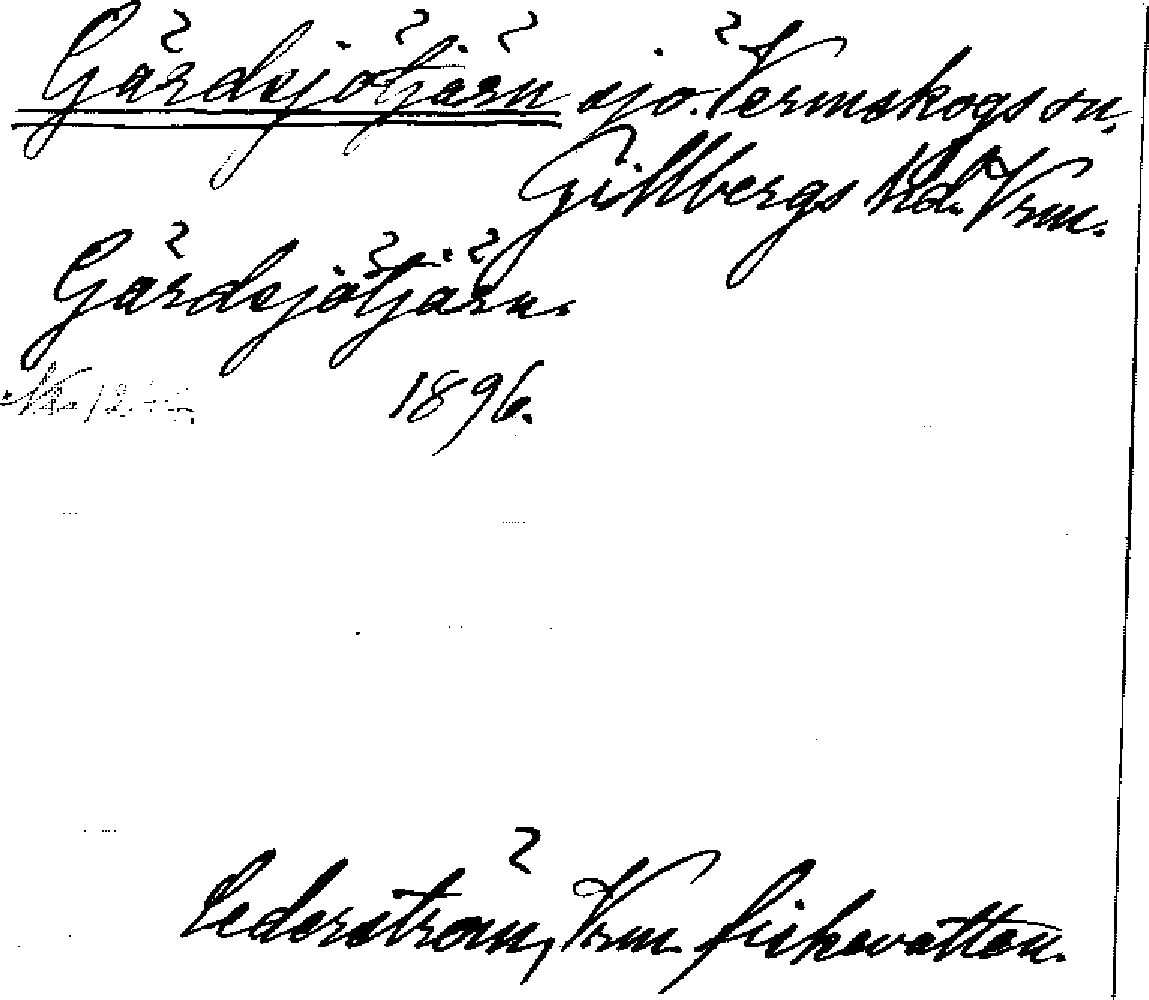 Gärdsjötjärn sjö. Vermskogs sn,
Gillbergs hd. Vrm.
Gärdsjötjärn.
1896.
Cederström, Vrm. fiskevatten.